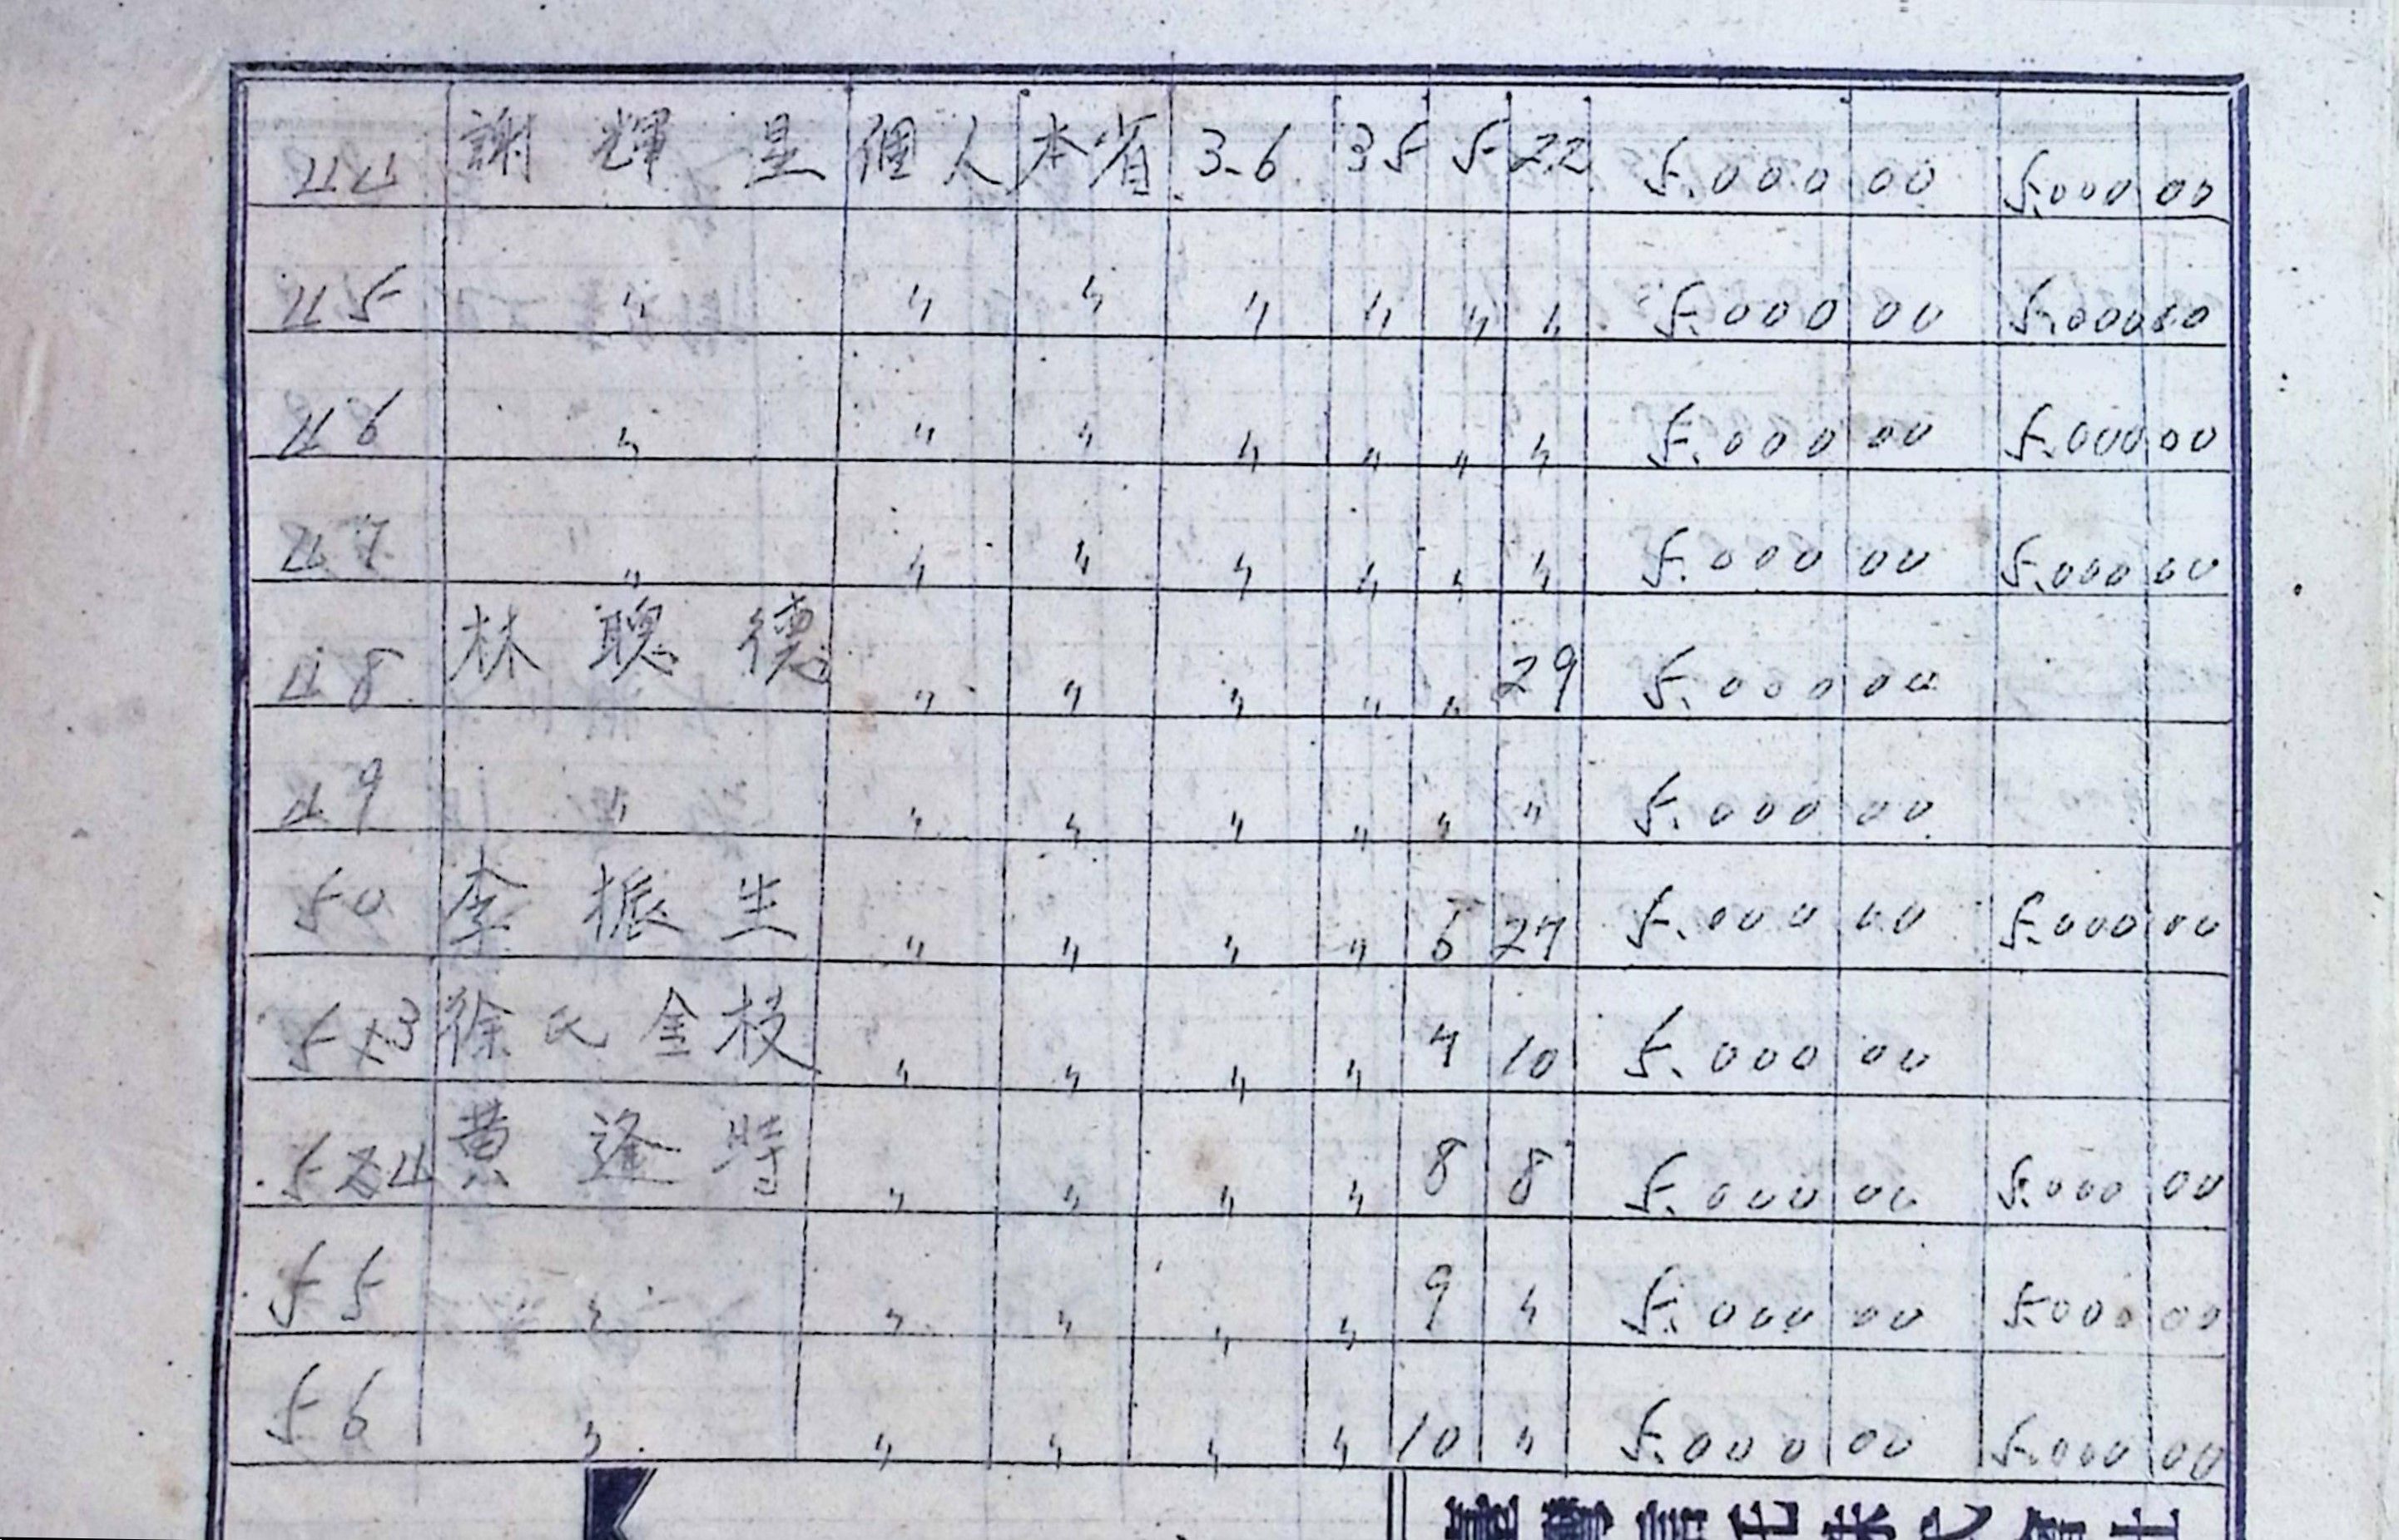 44 謝輝星 個人 本省 3.6 35 5 22 5.000 00 5.000 00
45 〃 〃 〃 〃 〃 〃 〃 5.000 00 5.000 00
46 〃 〃 〃 〃 〃 〃 〃 5.000 00 5.000 00
47 〃 〃 〃 〃 〃 〃 〃 5.000 00 5.000 00
48 林聰德 〃 〃 〃 〃 〃 29 5.000 00
49 〃 〃 〃 〃 〃 〃 〃 5.000 00
50 李振生 〃 〃 〃 〃 27 5.000 00 5.000 00
53 徐氏金枝 〃 〃 〃 〃 10 5.000 00
54 黄逢時 〃 〃 〃 〃 8 8 5.000 00 5.000 00
55 〃 〃 〃 〃 〃 9 〃 5.000 00 5.000 00
56 〃 〃 〃 〃 〃 10 〃 5.000 00 5.000 00